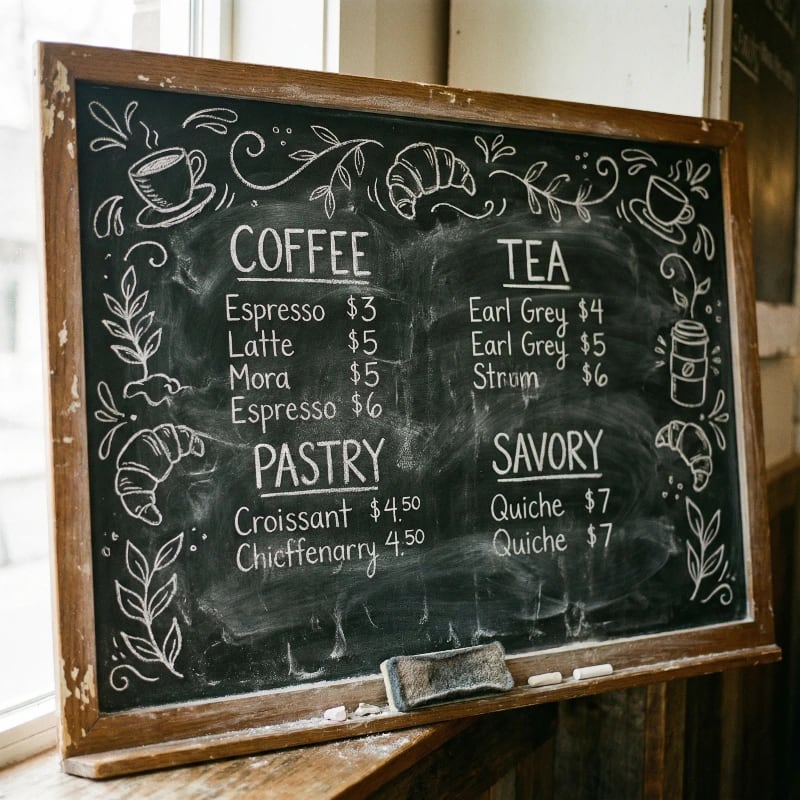 COFFEE
Espresso $3
Latte $5
Mora $5
Espresso $6
TEA
Earl Grey $4
Earl Grey $5
$6
PASTRY
Croissant $4.50
Chicffenarry 4.50
SAVORY
Quiche $7
Quiche $7